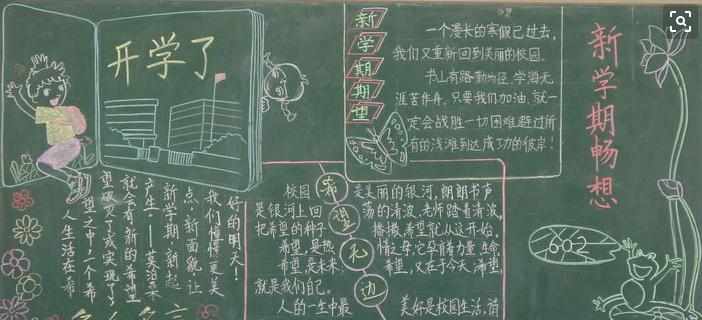 开学了
新学期期望
一个漫长的寒假已过去,
我们又重新回到美丽的校园。
书山有路勤为径,学海无
涯苦作舟。只要我们加油,就一
定会战胜一切困难避过所
有的浅滩到达成功的彼岸!
新学期畅想
602
希望无边
校园是美丽的银河,朗朗书声
是银河上回荡的清波,老师踏着清波,
把希望的种子播撒,希望就从这开始。
希望,是热情之母,它孕育着
希望是未来,希望,又在于今天,
就是我们自己。
人的一生中最美好是校园生活,请
好的明天!
我们憧憬更美
点,新面貌,让
新学期,新起
产生——莫泊桑
就会有新的希望
望破灭了或实现了,
望之中,一个希
人生活在希